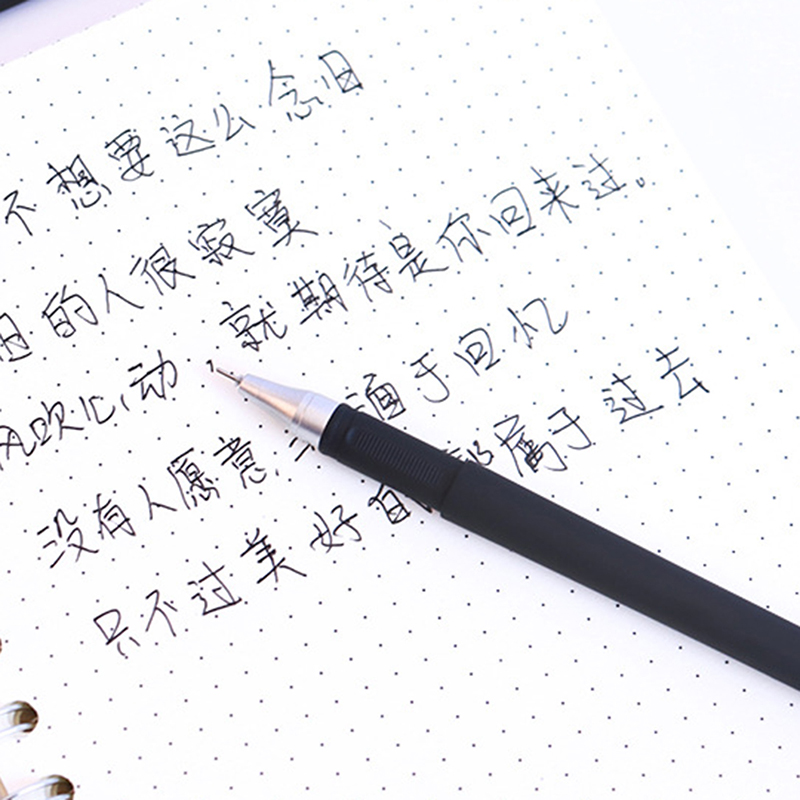 不想要这么念旧
旧的人很寂寞
风吹心动 就期待是你回来过。
没有人愿意 湎于回忆
只不过美好的都属于过去